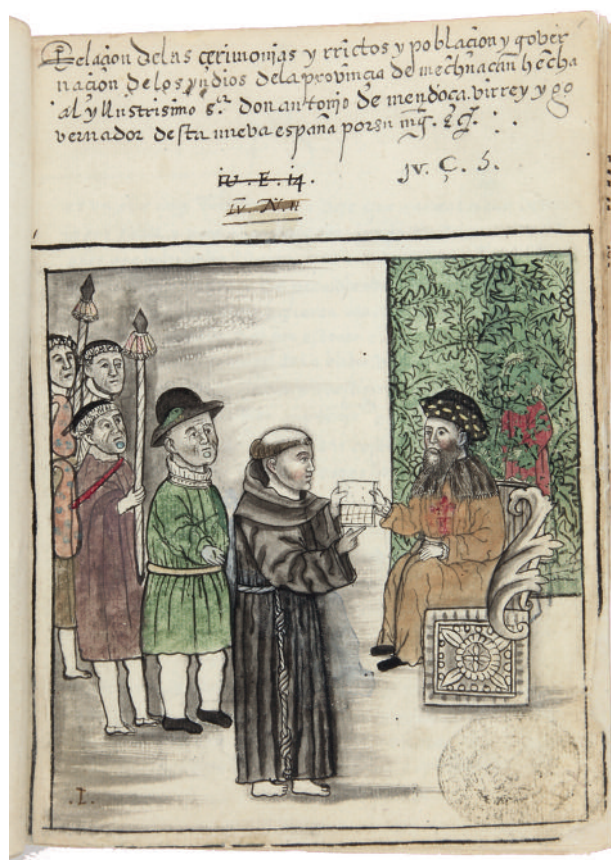 Relacion delas çerimonias y rrictos y poblacion y gover
nacion delos yndios dela provincia de mechuacan hecha
al yllustrisimo s.or don antonjo de mendoça. virrey y go
vernador desta nueva españa por su mg.
IV . E . 14.
IV . N . 11
IV . Ç . 5.
.I.